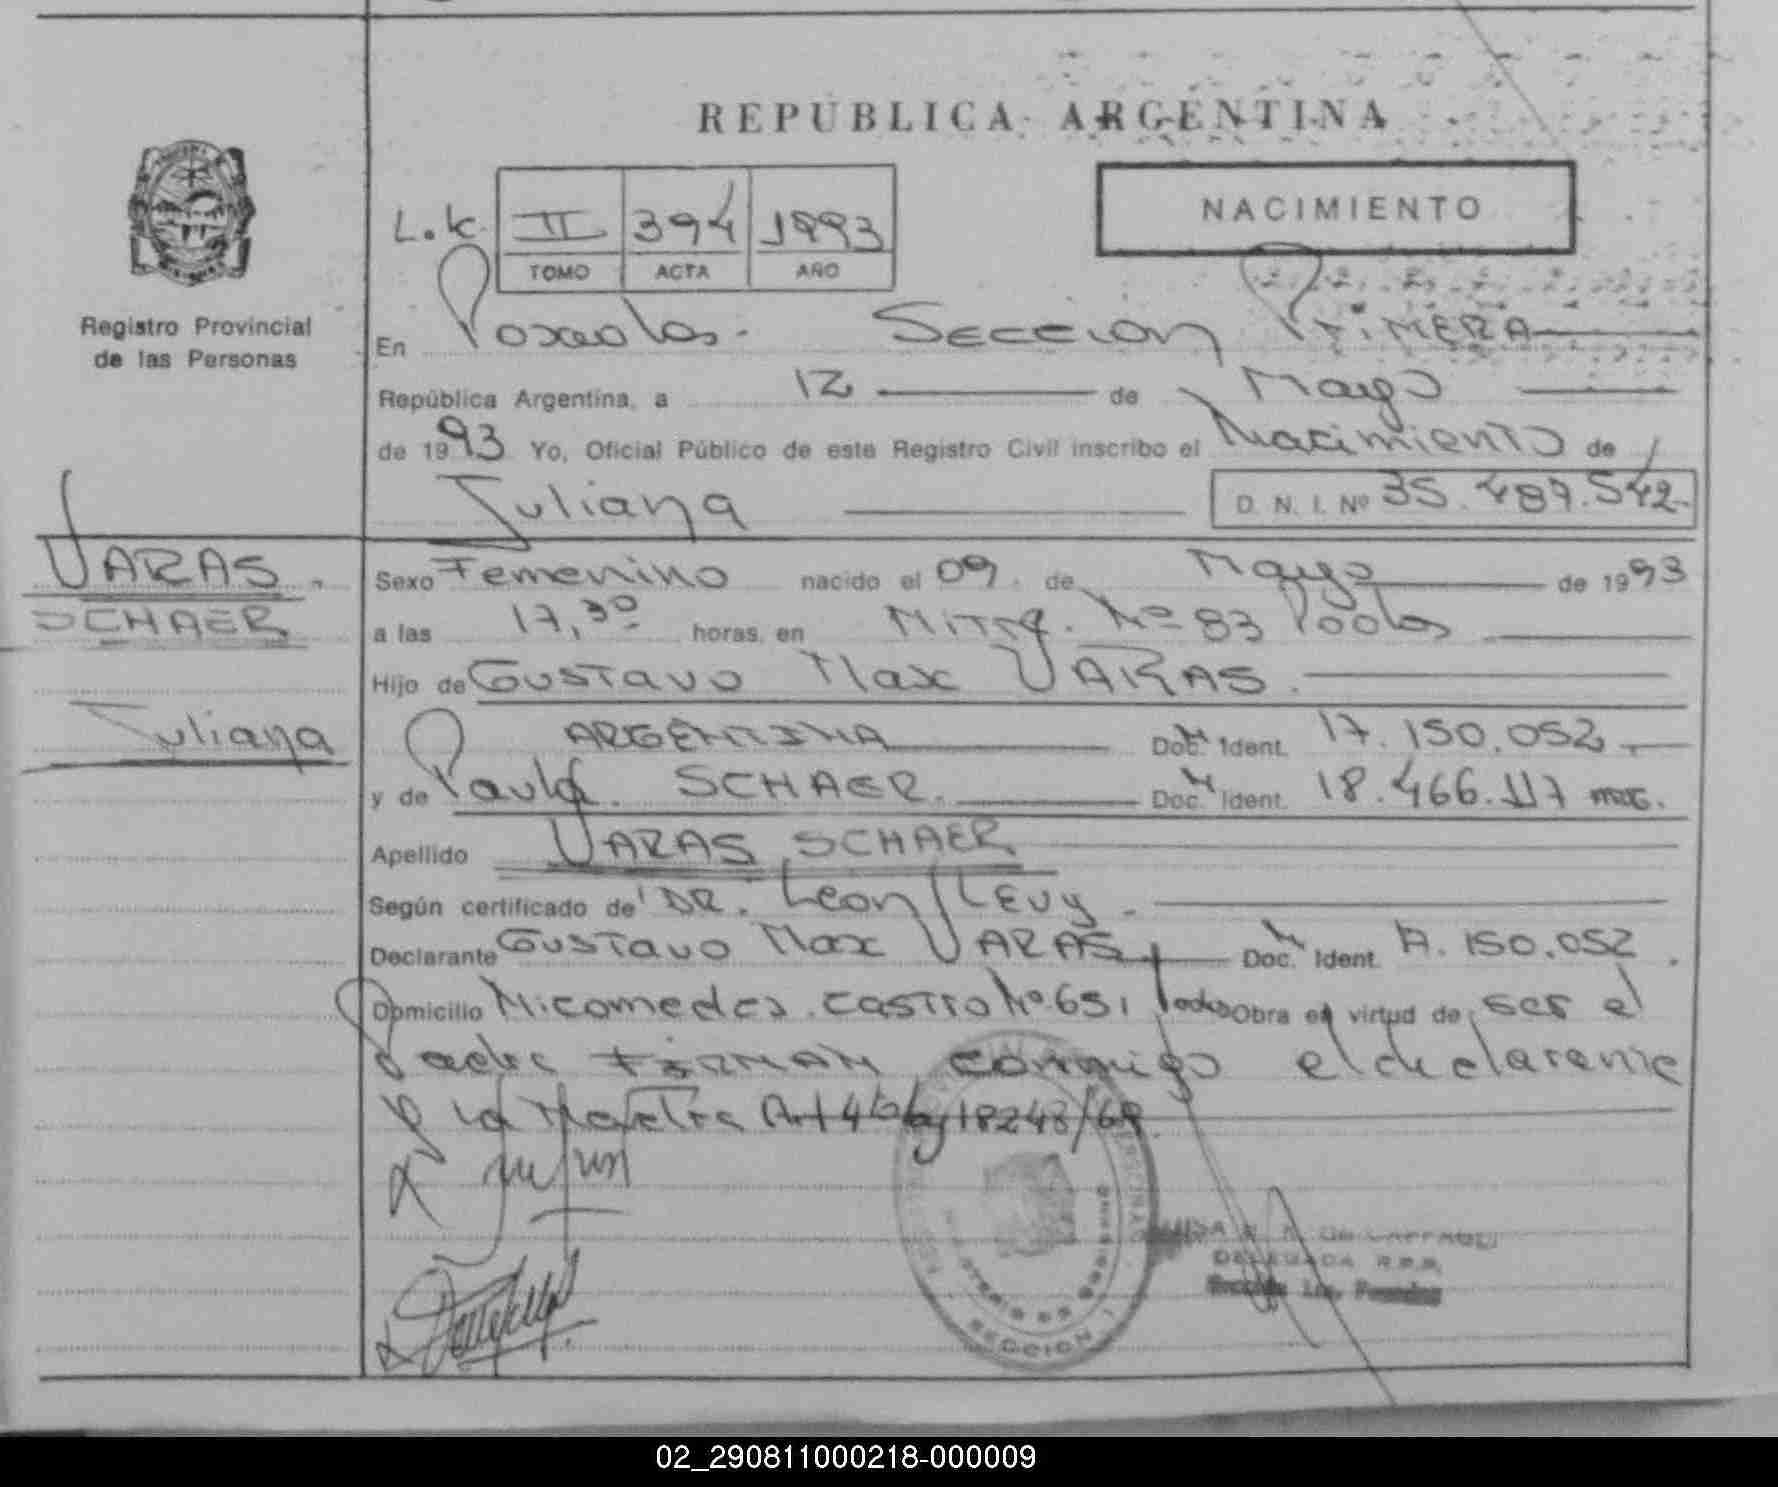 REPUBLICA ARGENTINA
NACIMIENTO
L.K. II 394 1993
TOMO ACTA AÑO
Registro Provincial
de las Personas
En Posadas. SECCION PRIMERA
República Argentina, a 12 de Mayo
de 1993 Yo, Oficial Público de este Registro Civil inscribo el Nacimiento de
Juliana D. N. I. Nº 35.487.542
VARAS.
SCHAER
Juliana
Sexo Femenino nacido el 09. de Mayo de 1993
a las 17,30 horas, en Nº 83
Hijo de Gustavo Max VARAS.
ARGENTINA Doc. Ident. 17.150.052
y de Paula SCHAER. Doc. Ident. 18.466.117
Apellido VARAS SCHAER
Según certificado de DR. Leon LEVY.
Declarante Gustavo Max VARAS Doc. Ident. 17.150.052.
Domicilio Nicomedes Castro Nº 651 Obra en virtud de ser el
padre FIRMAN conmigo el declarante
y la Art 4 ley 18248/69.
DELEGADA R.P.P.
SECCION 1
02_290811000218-000009